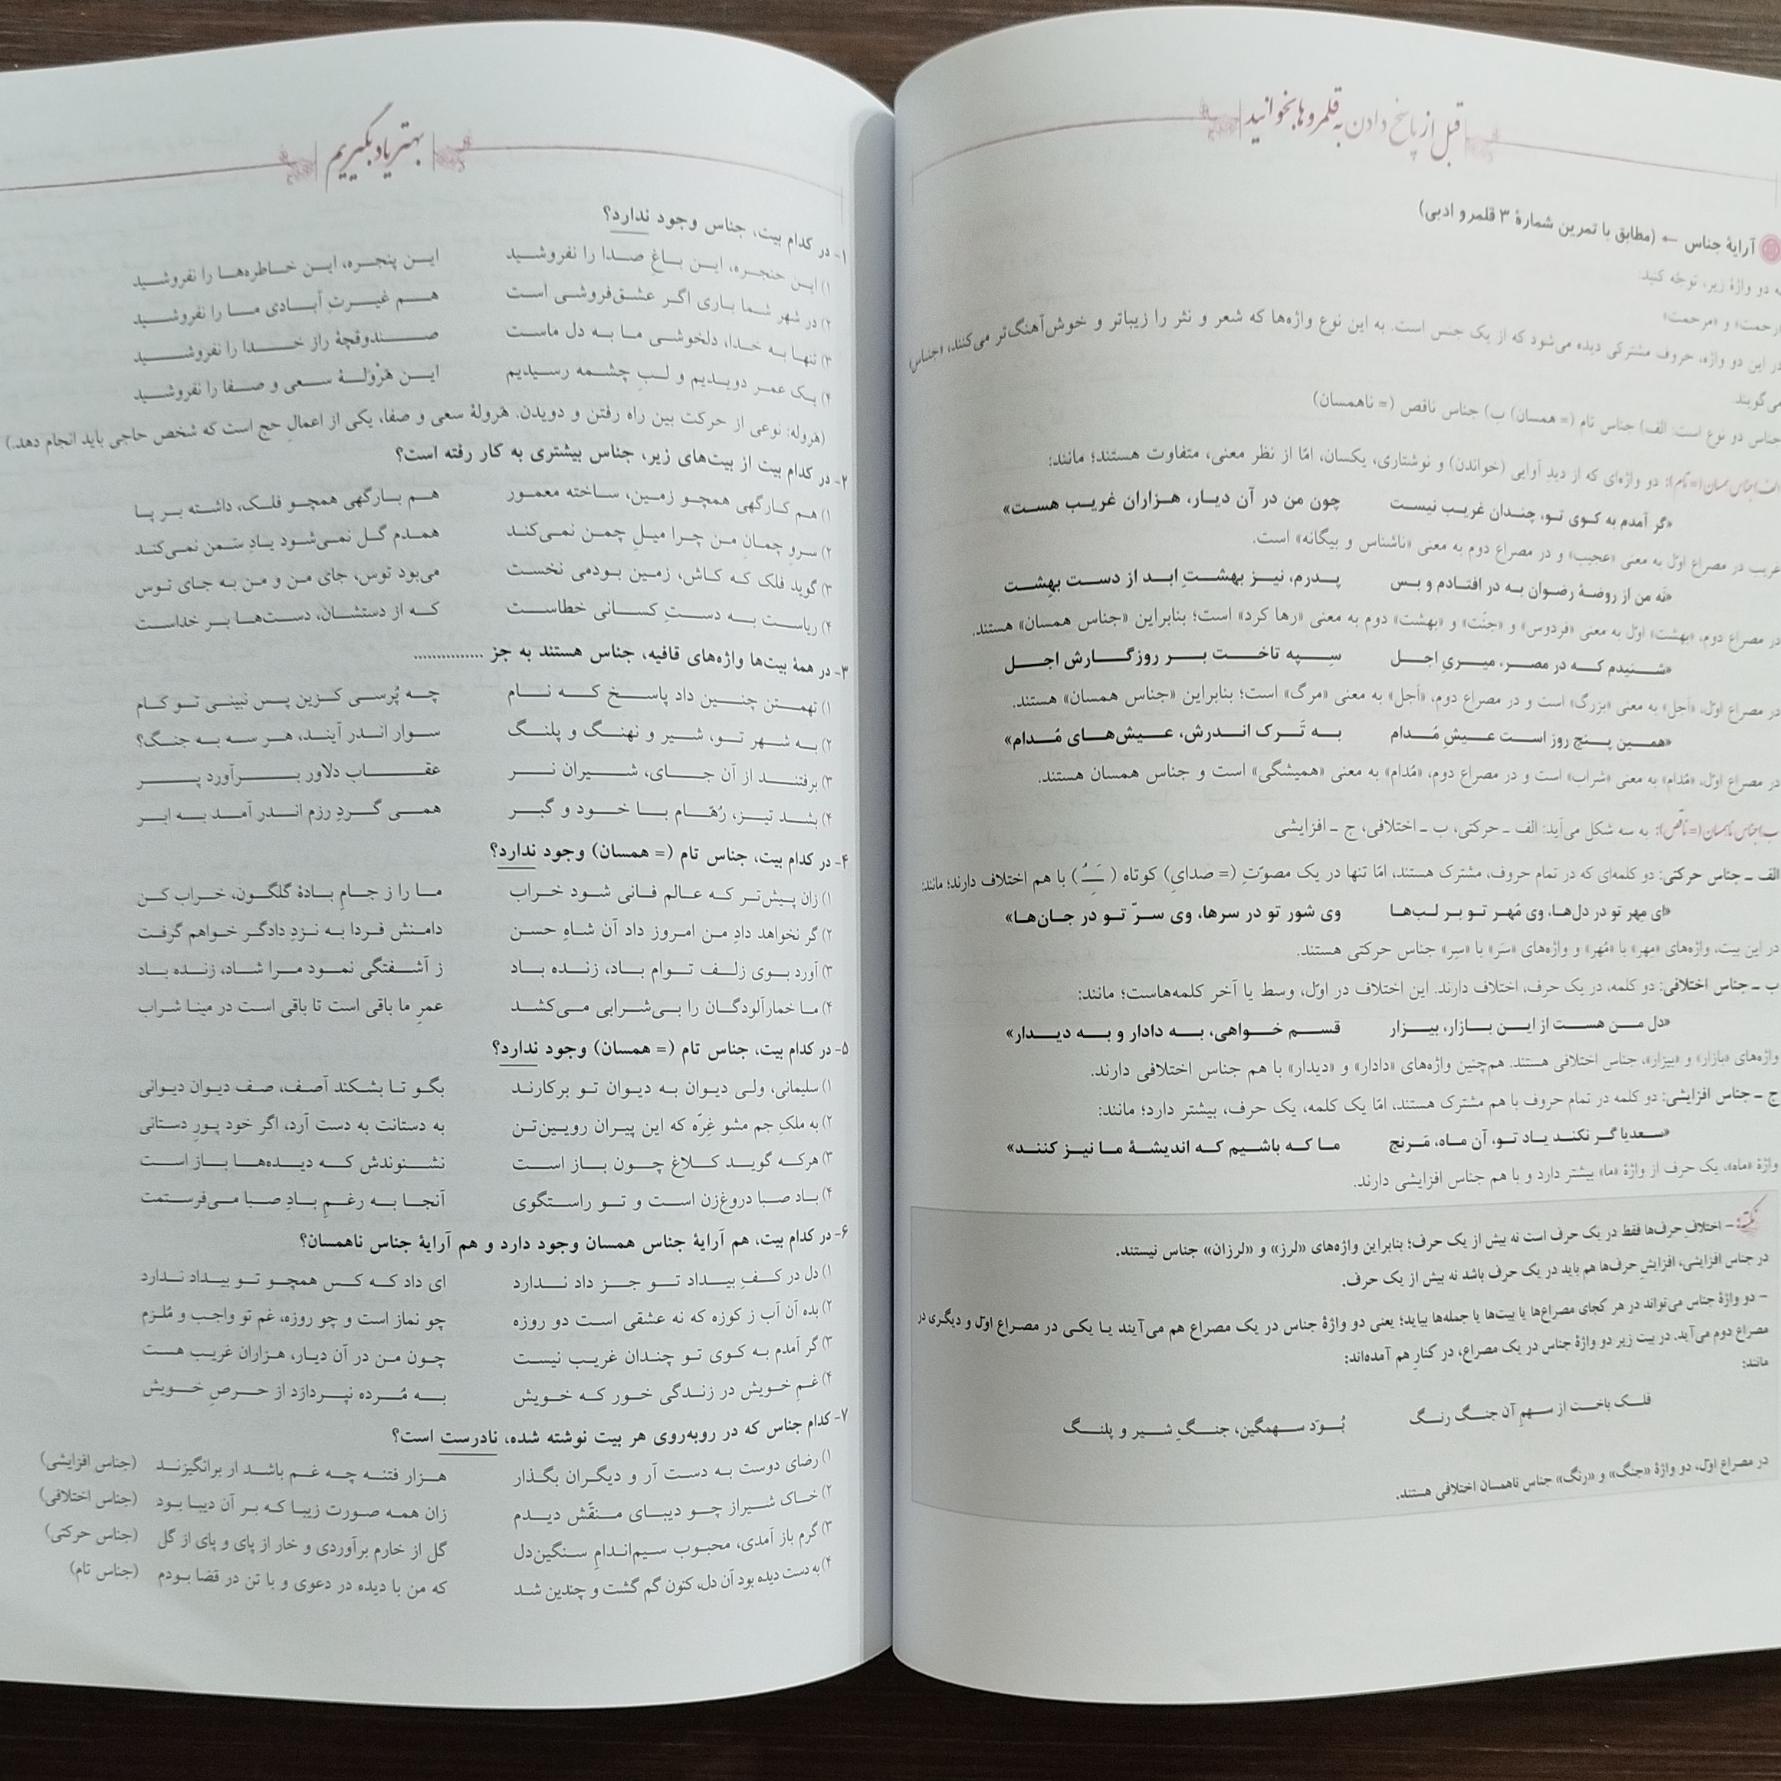 قبل از پاسخ دادن به قلمروها بخوانید
آرایهٔ جناس ← (مطابق با تمرین شمارهٔ ۳ قلمرو ادبی)
به دو واژهٔ زیر، توجّه کنید:
«رحمت» و «مرحمت»
در این دو واژه، حروف مشترکی دیده می‌شود که از یک جنس است. به این نوع واژه‌ها که شعر و نثر را زیباتر و خوش‌آهنگ‌تر می‌کنند، «جناس»
می‌گویند.
جناس دو نوع است: الف) جناس تام (= همسان) ب) جناس ناقص (= ناهمسان)
الف) جناس همسان (= تام): دو واژه‌ای که از دیدِ آوایی (خواندن) و نوشتاری، یکسان، امّا از نظر معنی، متفاوت هستند؛ مانند:
«گر آمدم به کوی تو، چندان غریب نیست چون من در آن دیار، هزاران غریب هست»
غریب در مصراع اوّل به معنی «عجیب» و در مصراع دوم به معنی «ناشناس و بیگانه» است.
«نه من از روضهٔ رضوان به در افتادم و بس پدرم، نیز بهشتِ ابد از دست بهِشت
در مصراع دوم، «بهشت» اوّل به معنی «فردوس» و «جنّت» و «بهشت» دوم به معنی «رها کرد» است؛ بنابراین «جناس همسان» هستند.
«شنیدم که در مصر، میریِ اجل سپه تاخت بر روزگارش اجل
در مصراع اوّل، «اَجل» به معنی «بزرگ» است و در مصراع دوم، «اَجل» به معنی «مرگ» است؛ بنابراین «جناس همسان» هستند.
«همین پنج روز است عیشِ مُدام به تَرک اندرش، عیش‌های مُدام»
در مصراع اوّل، «مُدام» به معنی «شراب» است و در مصراع دوم، «مُدام» به معنی «همیشگی» است و جناس همسان هستند.
ب) جناس ناهمسان (= ناقص): به سه شکل می‌آید: الف ـ حرکتی، ب ـ اختلافی، ج ـ افزایشی
الف ـ جناس حرکتی: دو کلمه‌ای که در تمام حروف، مشترک هستند، امّا تنها در یک مصوّتِ (= صدایِ) کوتاه (ـَـِـُ) با هم اختلاف دارند؛ مانند:
«ای مِهر تو در دل‌ها، وی مُهر تو بر لب‌ها وی شور تو در سرها، وی سرّ تو در جان‌ها»
در این بیت، واژه‌های «مِهر» با «مُهر» و واژه‌های «سَر» با «سِر» جناس حرکتی هستند.
ب ـ جناس اختلافی: دو کلمه، در یک حرف، اختلاف دارند. این اختلاف در اوّل، وسط یا آخر کلمه‌هاست؛ مانند:
«دل من هست از این بازار، بیزار قسم خواهی، به دادار و به دیدار»
واژه‌های «بازار» و «بیزار»، جناس اختلافی هستند. هم‌چنین واژه‌های «دادار» و «دیدار» با هم جناس اختلافی دارند.
ج ـ جناس افزایشی: دو کلمه در تمام حروف با هم مشترک هستند، امّا یک کلمه، یک حرف، بیشتر دارد؛ مانند:
«سعدیا گر نکند یاد تو، آن ماه، مَرنج ما که باشیم که اندیشهٔ ما نیز کنند»
واژهٔ «ماه»، یک حرف از واژهٔ «ما» بیشتر دارد و با هم جناس افزایشی دارند.
نکته: – اختلافِ حرف‌ها فقط در یک حرف است نه بیش از یک حرف؛ بنابراین واژه‌های «لرز» و «لرزان» جناس نیستند.
در جناس افزایشی، افزایشِ حرف‌ها هم باید در یک حرف باشد نه بیش از یک حرف.
– دو واژهٔ جناس می‌تواند در هر کجای مصراع‌ها یا بیت‌ها یا جمله‌ها بیاید؛ یعنی دو واژهٔ جناس در یک مصراع هم می‌آیند یا یکی در مصراع اوّل و دیگری در
مصراع دوم می‌آید. در بیت زیر دو واژهٔ جناس در یک مصراع، در کنارِ هم آمده‌اند:
مانند:
فلک باخت از سهمِ آن جنگ رنگ بُوَد سهمگین، جنگِ شیر و پلنگ
در مصراع اوّل، دو واژهٔ «جنگ» و «رنگ» جناس ناهمسان اختلافی هستند.
بهتر یاد بگیریم
۱- در کدام بیت، جناس وجود ندارد؟
۱) این حنجره، این باغِ صدا را نفروشید این پنجره، این خاطره‌ها را نفروشید
۲) در شهر شما باری اگر عشق‌فروشی است هم غیرتِ آبادی ما را نفروشید
۳) تنها به خدا، دلخوشی ما به دل ماست صندوقچهٔ راز خدا را نفروشید
۴) یک عمر دویدیم و لبِ چشمه رسیدیم این هَرْوَلهٔ سعی و صفا را نفروشید
(هَروله: نوعی از حرکت بین راه رفتن و دویدن. هَرولهٔ سعی و صفا، یکی از اعمالِ حج است که شخص حاجی باید انجام دهد.)
۲- در کدام بیت از بیت‌های زیر، جناس بیشتری به کار رفته است؟
۱) هم کارگهی همچو زمین، ساخته معمور هم بارگهی همچو فلک، داشته بر پا
۲) سروِ چمانِ من چرا میلِ چمن نمی‌کند همدم گل نمی‌شود یادِ سَمن نمی‌کند
۳) گوید فلک که کاش، زمین بودمی نخست می‌بود توس، جای من و من به جای توس
۴) ریاست به دستِ کسانی خطاست که از دستشان، دست‌ها بر خداست
۳- در همهٔ بیت‌ها واژه‌های قافیه، جناس هستند به جز ...............
۱) تهمتن چنین داد پاسخ که نام چه پُرسی کزین پس نبینی تو کام
۲) به شهر تو، شیر و نهنگ و پلنگ سوار اندر آیند، هر سه به جنگ؟
۳) برفتند از آن جای، شیران نر عقاب دلاور برآورد پر
۴) بشد تیز، رُهّام با خود و گبر همی گردِ رزم اندر آمد به ابر
۴- در کدام بیت، جناس تام (= همسان) وجود ندارد؟
۱) زان پیش‌تر که عالم فانی شود خراب ما را ز جامِ بادهٔ گلگون، خراب کن
۲) گر نخواهد دادِ من امروز داد آن شاهِ حسن دامنش فردا به نزدِ دادگر خواهم گرفت
۳) آورد بوی زلف توام باد، زنده باد ز آشفتگی نمود مرا شاد، زنده باد
۴) ما خمارآلودگان را بی‌شرابی می‌کشد عمرِ ما باقی است تا باقی است در مینا شراب
۵- در کدام بیت، جناس تام (= همسان) وجود ندارد؟
۱) سلیمانی، ولی دیوان به دیوان تو برکارند بگو تا بشکند آصف، صف دیوان دیوانی
۲) به ملکِ جم مشو غِرّه که این پیران رویین‌تن به دستانت به دست آرد، اگر خود پورِ دستانی
۳) هرکه گوید کلاغ چون باز است نشنوندش که دیده‌ها باز است
۴) باد صبا دروغ‌زن است و تو راستگوی آنجا به رغمِ بادِ صبا می‌فرستمت
۶- در کدام بیت، هم آرایهٔ جناس همسان وجود دارد و هم آرایهٔ جناس ناهمسان؟
۱) دل در کفِ بیداد تو جز داد ندارد ای داد که کس همچو تو بیداد ندارد
۲) بده آن آب ز کوزه که نه عشقی است دو روزه چو نماز است و چو روزه، غم تو واجب و مُلزم
۳) گر آمدم به کوی تو چندان غریب نیست چون من در آن دیار، هزاران غریب هست
۴) غمِ خویش در زندگی خور که خویش به مُرده نپردازد از حرصِ خویش
۷- کدام جناس که در روبه‌روی هر بیت نوشته شده، نادرست است؟
۱) رضای دوست به دست آر و دیگران بگذار هزار فتنه چه غم باشد ار برانگیزند (جناس افزایشی)
۲) خاک شیراز چو دیبای منقّش دیدم زان همه صورت زیبا که بر آن دیبا بود (جناس اختلافی)
۳) گرم باز آمدی، محبوب سیم‌اندامِ سنگین‌دل گل از خارم برآوردی و خار از پای و پای از گل (جناس حرکتی)
۴) به دست دیده بود آن دل، کنون گم گشت و چندین شد که من با دیده در دعوی و با تن در قضا بودم (جناس تام)